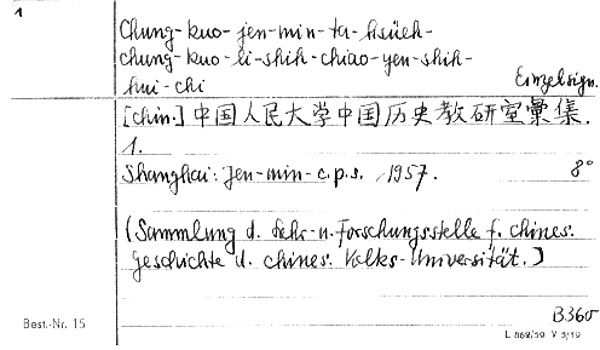 1
Chung-kuo-jen-min-ta-hsüeh-
chung-kuo-li-shih-chiao-yen-shih-
hui-chi
Einzelsign.
[chin.] 中国人民大学中国历史教研室彙集.
1.
Shanghai: Jen-min-c.p.s. 1957. 8°
(Sammlung d. Lehr- u. Forschungsstelle f. chines.
Geschichte d. chines. Volks-Universität.)
B360
Best.-Nr. 15
L 868/59 V 5/19